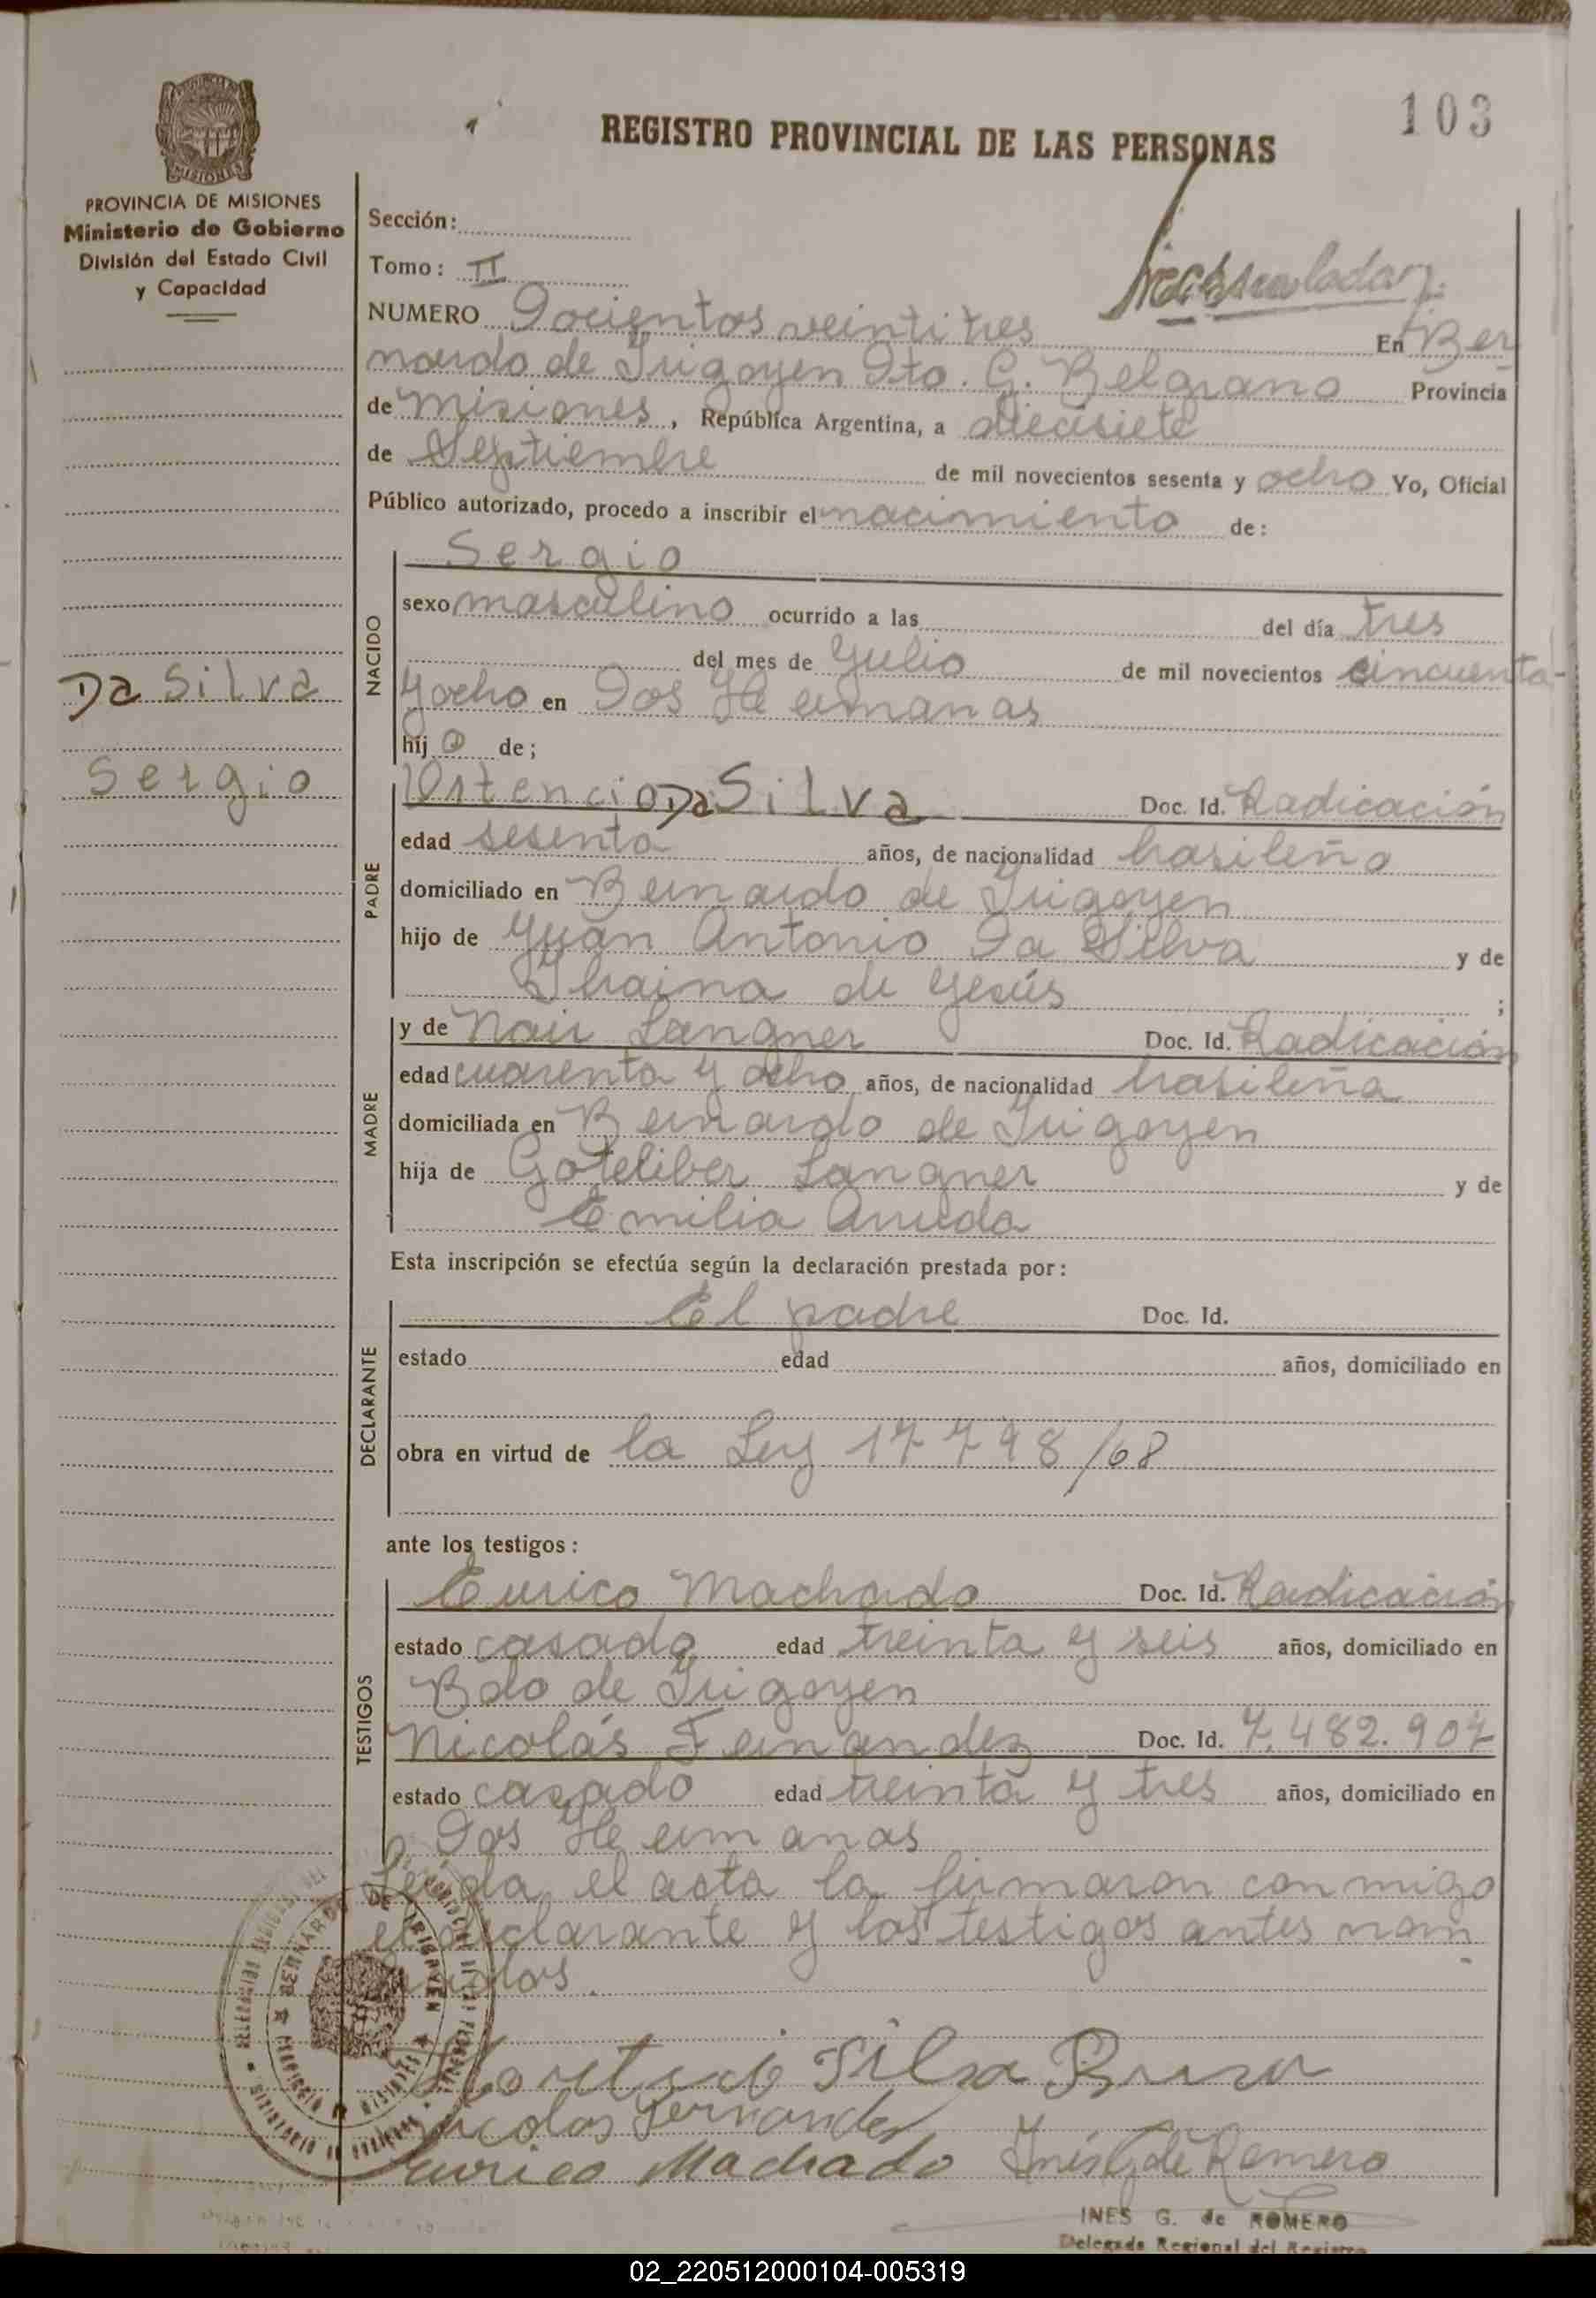 103
REGISTRO PROVINCIAL DE LAS PERSONAS
MISIONES
PROVINCIA DE MISIONES
Ministerio de Gobierno
División del Estado Civil
y Capacidad
Sección:
Tomo: II
NUMERO Docientos veinti tres En Ber
nardo de Irigoyen Dto. G. Belgrano Provincia
de Misiones, República Argentina, a diecisiete
de Septiembre de mil novecientos sesenta y ocho Yo, Oficial
Público autorizado, procedo a inscribir el nacimiento de:
Da Silva
Sergio
NACIDO
Sergio
sexo masculino ocurrido a las del día tres
del mes de Julio de mil novecientos cincuenta-
y ocho en Dos Hermanas
hijo de;
PADRE
Da Silva Doc. Id. Radicación
edad sesenta años, de nacionalidad brasileño
domiciliado en Bernardo de Irigoyen
hijo de Juan Antonio Da Silva y de
de Jesús ;
MADRE
y de Nair Langner Doc. Id. Radicación
edad cuarenta y ocho años, de nacionalidad brasileña
domiciliada en Bernardo de Irigoyen
hija de Goteliber Langner y de
Emilia Arruda
Esta inscripción se efectúa según la declaración prestada por:
DECLARANTE
El padre Doc. Id.
estado edad años, domiciliado en
obra en virtud de la Ley 17798/68
ante los testigos:
TESTIGOS
Eurico Machado Doc. Id. Radicación
estado casado edad treinta y seis años, domiciliado en
Bdo de Irigoyen
Nicolás Fernandez Doc. Id. 7.482.907
estado casado edad treinta y tres años, domiciliado en
Dos Hermanas
Leída el acta la firmaron conmigo
el declarante y los testigos antes nom
brados.
BERNARDO DE IRIGOYEN
Silva
Nicolas Fernandez
Eurico Machado Inés G de Romero
INES G. de ROMERO
Delegada Regional del Registro
02_220512000104-005319